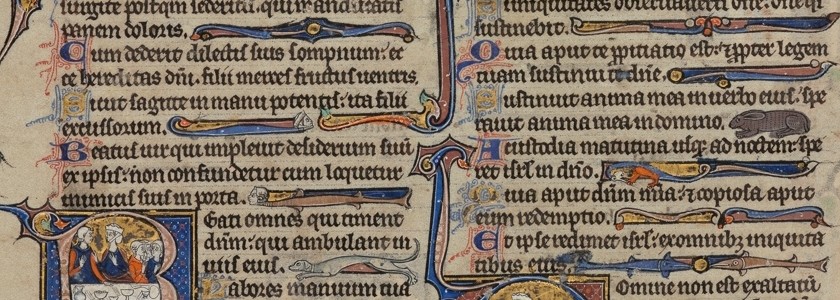 surgite postqm sederitis. qui manducatis
panem doloris.
Cum dederit dilectis suis sompnum: ec
ce hereditas dñi. filii merces fructus uentris.
Sicut sagitte in manu potentis: ita filii
excussorum.
Beatus uir qui impleuit desiderium suũ
ex ipsis: non confundetur cum loquetur
inimicis suis in porta.
Beati omnes qui timent
dũm: qui ambulant in
uiis eius.
Labores manuum tua
si iniquitates obseruaueris dñe: dñe qi
sustinebit.
Quia aput te ꝓpitiatio est: ꝓpter legem
tuam sustinui te dñe.
Sustinuit anima mea in uerbo eius: spe
rauit anima mea in domino.
A custodia matutina usqꝫ ad noctem: spe
ret isrl in dño.
Quia aput dũm mia: ⁊ copiosa aput
eum redemptio.
Et ipse redimet isrl: ex omnibꝫ iniquita
tibus eius.
Domine non est exaltatũ